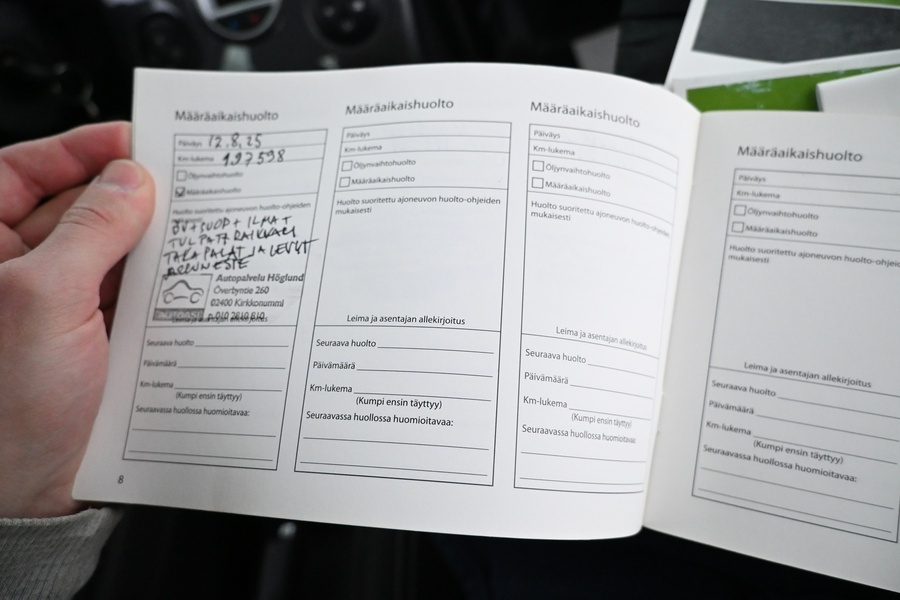 Määräaikaishuolto
Päiväys 12.8.25
Km-lukema 197598
Öljynvaihtohuolto
Määräaikaishuolto
Huolto suoritettu ajoneuvon huolto-ohjeiden
ÖV+SUOD+ILMAT
TULPAT RAIKKARI
TAKA PALAT JA LEVYT
JARRUNESTE
Autopalvelu Höglund
Överbyntie 260
02400 Kirkkonummi
p.010 2810 810
AUTOASI
Leima ja asentajan allekirjoitus
Seuraava huolto
Päivämäärä
Km-lukema
(Kumpi ensin täyttyy)
Seuraavassa huollossa huomioitavaa:
8
Määräaikaishuolto
Päiväys
Km-lukema
Öljynvaihtohuolto
Määräaikaishuolto
Huolto suoritettu ajoneuvon huolto-ohjeiden
mukaisesti
Leima ja asentajan allekirjoitus
Seuraava huolto
Päivämäärä
Km-lukema
(Kumpi ensin täyttyy)
Seuraavassa huollossa huomioitavaa:
Määräaikaishuolto
Päiväys
Km-lukema
Öljynvaihtohuolto
Määräaikaishuolto
Huolto suoritettu ajoneuvon huolto-ohjeiden
mukaisesti
Leima ja asentajan allekirjoitus
Seuraava huolto
Päivämäärä
Km-lukema
(Kumpi ensin täyttyy)
Seuraavassa huollossa huomioitavaa:
Määräaikaishuolto
Päiväys
Km-lukema
Öljynvaihtohuolto
Määräaikaishuolto
Huolto suoritettu ajoneuvon huolto-ohjei
mukaisesti
Leima ja asentajan allekirjoitus
Seuraava huolto
Päivämäärä
Km-lukema
(Kumpi ensin täyttyy)
Seuraavassa huollossa huomioitavaa: